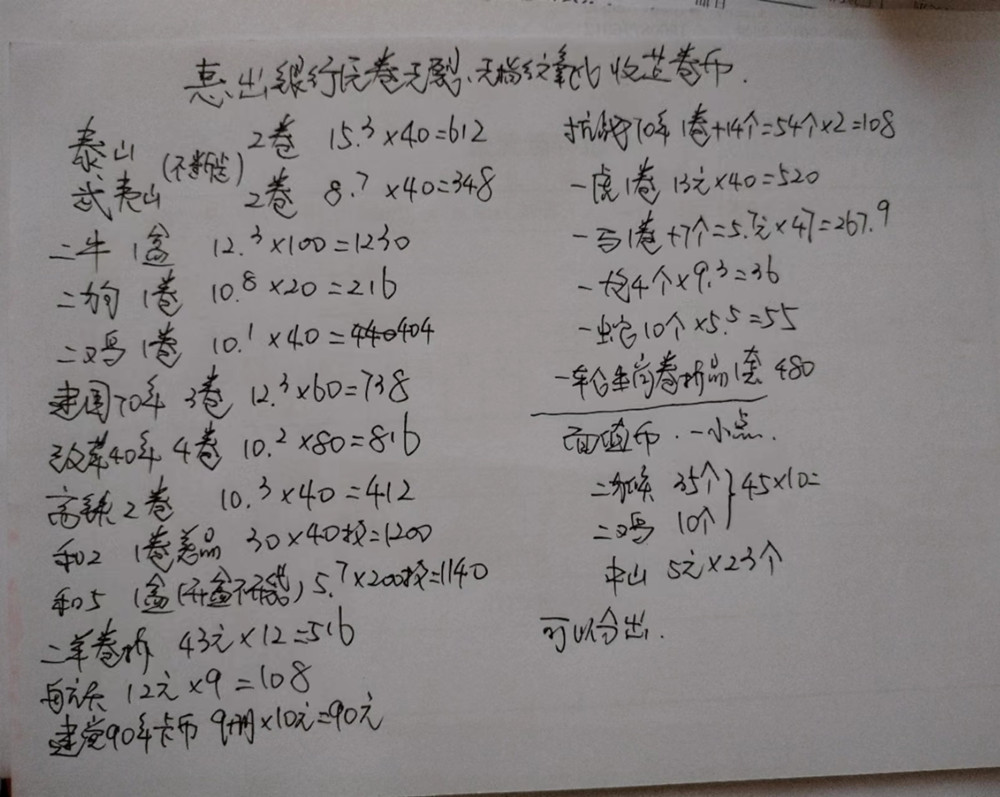 惠出银行原卷无裂、无指纹氧化收藏卷币.
泰山 2卷 15.3×40=612
(不断色)
武夷山 2卷 8.7×40=348
二牛 1盒 12.3×100=1230
二狗 1卷 10.8×20=216
二鸡 1卷 10.1×40=440404
建国70年 3卷 12.3×60=738
改革40年 4卷 10.2×80=816
高铁2卷 10.3×40=412
和2 1卷美品 30×40枚=1200
和5 1盒(开盒不开袋) 5.7×200枚=1140
二羊卷拆 43元×12=516
航天 12元×9=108
建党90年卡币 9册×10元=90元
抗战70年 1卷+14个=54个×2=108
一虎1卷 13元×40=520
一马1卷+7个=5.7元×47=267.9
一龙4个×9.3=36
一蛇10个×5.5=55
一轮生肖卷拆品1套 480
面值币.一小点.
二猴 35个
二鸡 10个 } 45×10=
中山 5元×23个
可以分出.